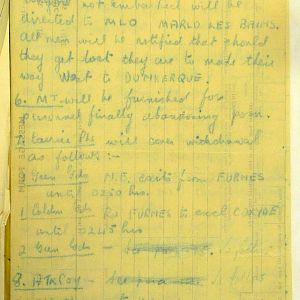 not embarked will be
directed to MLO MARLO LES BAINS.
All men will be notified that should
they get lost they are to make their
way West to DUNKERQUE.
6. MT. will be furnished for
personnel finally abandoning posn.
7. Carrier Pls will cover withdrawal
as follows :-
Gren Gds N.E. exits from FURNES
until 0230 hrs.
1 Coldm Gds Rd FURNES to excl COXYDE
until 0245 hrs
2 Gren Gds -
8. ATk Coy -